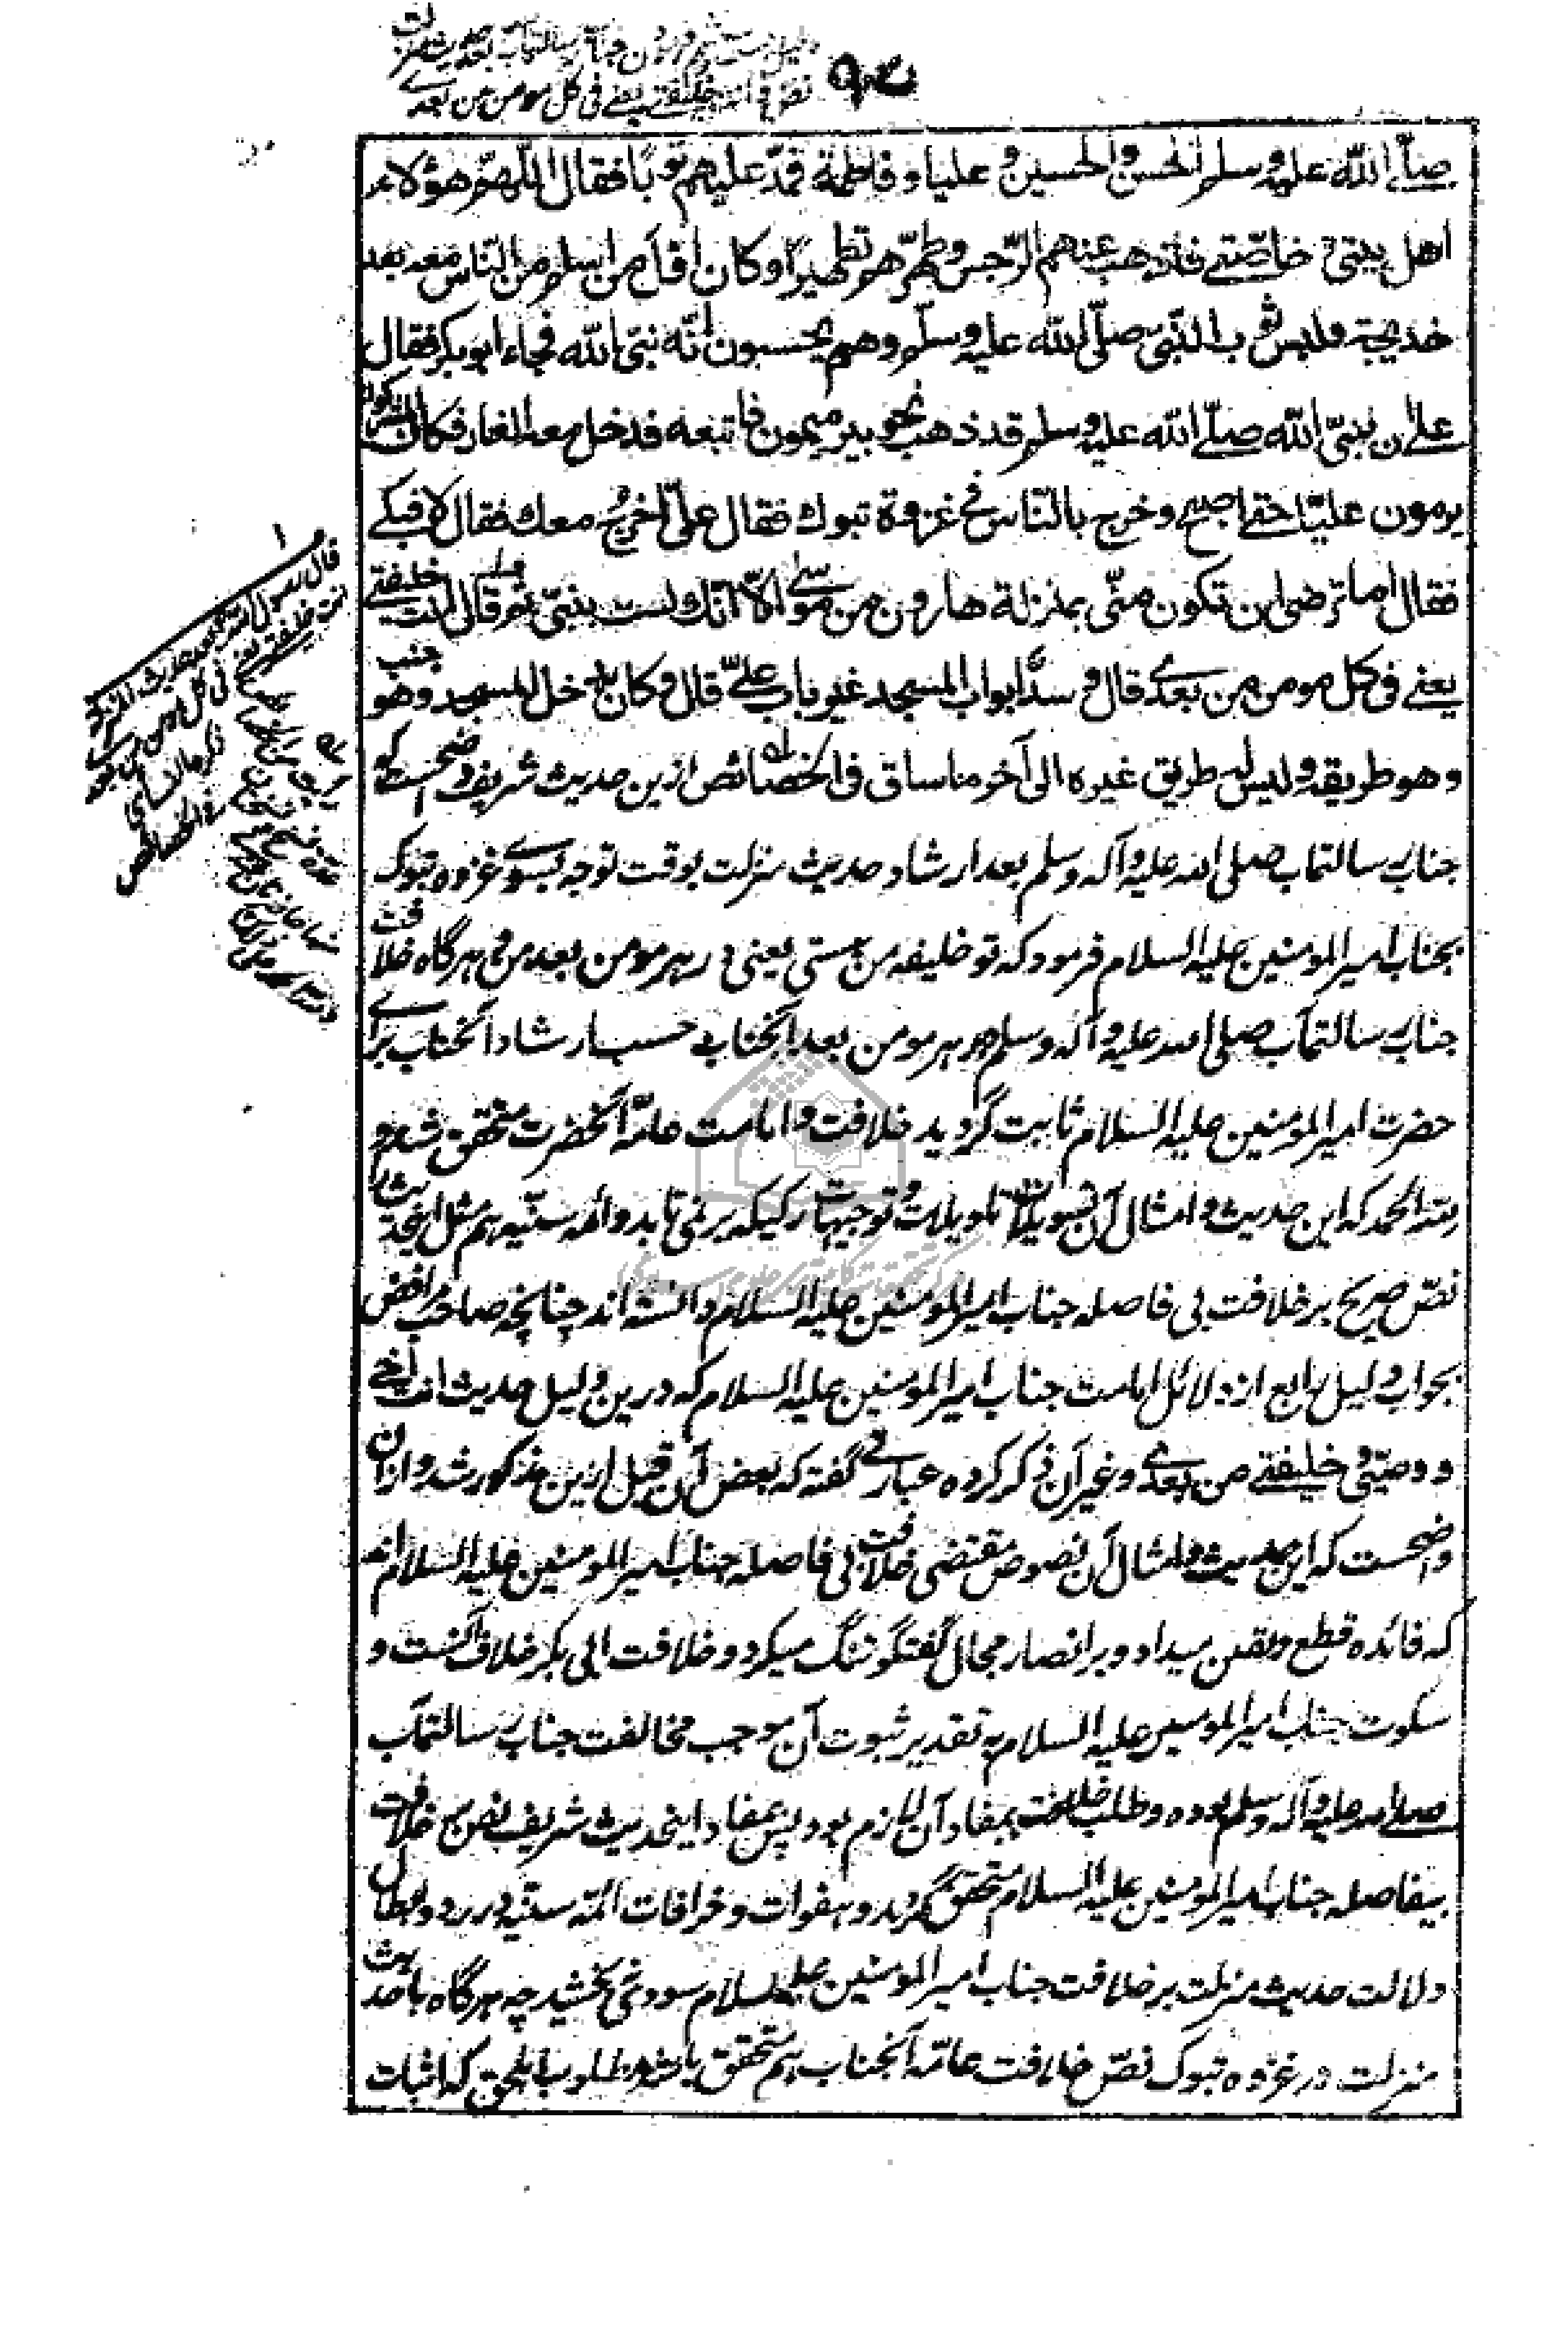 دلیل بست و ششم فرمودن جناب رسالتمآب بعد حدیث منزلت
نص انت خلیفتی یعنی فی کل مومن من بعدی
صلّى الله علیه وسلم الحسن والحسین و علیا و فاطمة فمدّ علیهم ثوبًا فقال اللّهمّ هؤلاء
اهل بیتی و خاصّتی فاذهب عنهم الرّجس وطهّرهم تطهیرًا وکان اوّل من اسلم من النّاس معه بعد
خدیجة ولبس ثوب النّبی صلّى الله علیه وسلّم وهم یحسبون انّه نبیّ الله فجاء ابو بکر فقال
علی ان نبیّ الله صلّى الله علیه وسلم قد ذهب نحو بیر میمون فاتبعه فدخل معه الغار فکان المشرکون
یرمون علیّا حتى اصبح وخرج بالنّاس فی غزوة تبوك فقال علیّ اخرج معك فقال لا فبکى
فقال اما ترضى ان تکون منّی بمنزلة هارون من موسى الّا انّك لست بنبیّ ثم قال انت خلیفتی
یعنی فی کل مومن من بعدی قال و سدّ ابواب المسجد غیر باب علیّ قال و کان یدخل المسجد وهو جنب
وهو طریقه ولیس له طریق غیره الى آخر ما ساق فی الخصائص ازین حدیث شریف واضحست که
جناب رسالتمآب صلی الله علیه وآله وسلم بعد ارشاد حدیث منزلت بوقت توجه بسوی غزوه تبوک
بجناب امیر المومنین علیه السلام فرمود که تو خلیفه من هستی یعنی در هر مومن بعد من و هرگاه خلافت
جناب رسالتمآب صلی الله علیه وآله وسلم در هر مومن بعد آنجناب حسب ارشاد آنجناب برای
حضرت امیر المومنین علیه السلام ثابت گردید خلافت و امامت عامّه آنحضرت متحقق شد و
لله الحمد که این حدیث و امثال آن تسویلات و تاویلات و توجیهات رکیکه بر نمی تابد و ائمه سنّیه هم مثل این حدیث را
نصّ صریح بر خلافت بی فاصله جناب امیر المومنین علیه السلام دانسته اند چنانچه صاحب مرافض
بجواب دلیل رابع از دلائل امامت جناب امیر المومنین علیه السلام که درین دلیل حدیث انت اخی
و وصیّی و خلیفتی من بعدی و غیر آن ذکر کرده عبارتی گفته که بعض آن قبل ازین مذکور شد و ازان
واضحست که این حدیث و امثال آن نصوص مقتضی خلافت بی فاصله جناب امیر المومنین علیه السلام اند
که فائده قطع و یقین میداد و بر انصار مجال گفتگو تنگ میکرد و خلافت ابی بکر خلاف آنست و
سکوت جناب امیر المومنین علیه السلام به تقدیر ثبوت آن موجب مخالفت جناب رسالتمآب
صلی الله علیه وآله وسلم بوده و طلب خلافت بمفاد آن لازم بود پس بمفاد این حدیث شریف نص بر خلافت
بیفاصله جناب امیر المومنین علیه السلام متحقق گردید و هفوات و خرافات ائمّه سنّیه در رد و ابطال
دلالت حدیث منزلت بر خلافت جناب امیر المومنین علیه السلام سودی نمی بخشید چه هرگاه با حدیث
منزلت در غزوه تبوک نصّ خلافت عامّه آنجناب هم متحقق باشد مطلوب اهل حق که اثبات
قال رسول الله بعد حدیث المنزلة
انت خلیفتی یعنی فی کل مومن من بعدی
ذکره النسائی
فی الخصائص